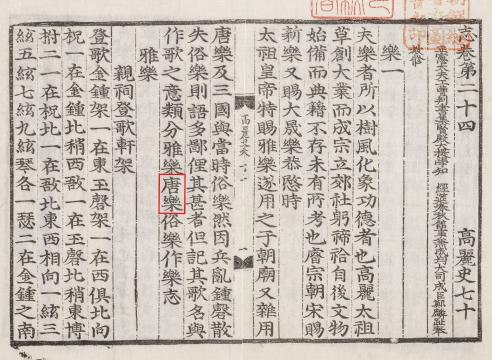 志卷第二十四 高麗史七十
正憲大夫工曹判書集賢殿大提學知 經筵春秋館事兼成均大司成臣鄭麟趾奉
教修
樂一
夫樂者所以樹風化象功德者也高麗太祖
草創大業而成宗立郊社躬禘祫自後文物
始備而典籍不存未有所考也睿宗朝宋賜
新樂又賜大晟樂恭愍時
高麗史
太祖皇帝特賜雅樂遂用之于朝廟又雜用
唐樂及三國與當時俗樂然因兵亂鍾磬散
失俗樂則語多鄙俚其甚者但記其歌名與
作歌之意類分雅樂唐樂俗樂作樂志
雅樂
親祠登歌軒架
登歌金鍾架一在東玉磬架一在西俱北向
柷一在金鍾北稍西敔一在玉磬北稍東搏
拊二一在柷北一在敔北東西相向一絃三
絃五絃七絃九絃琴各一瑟二在金鍾之南